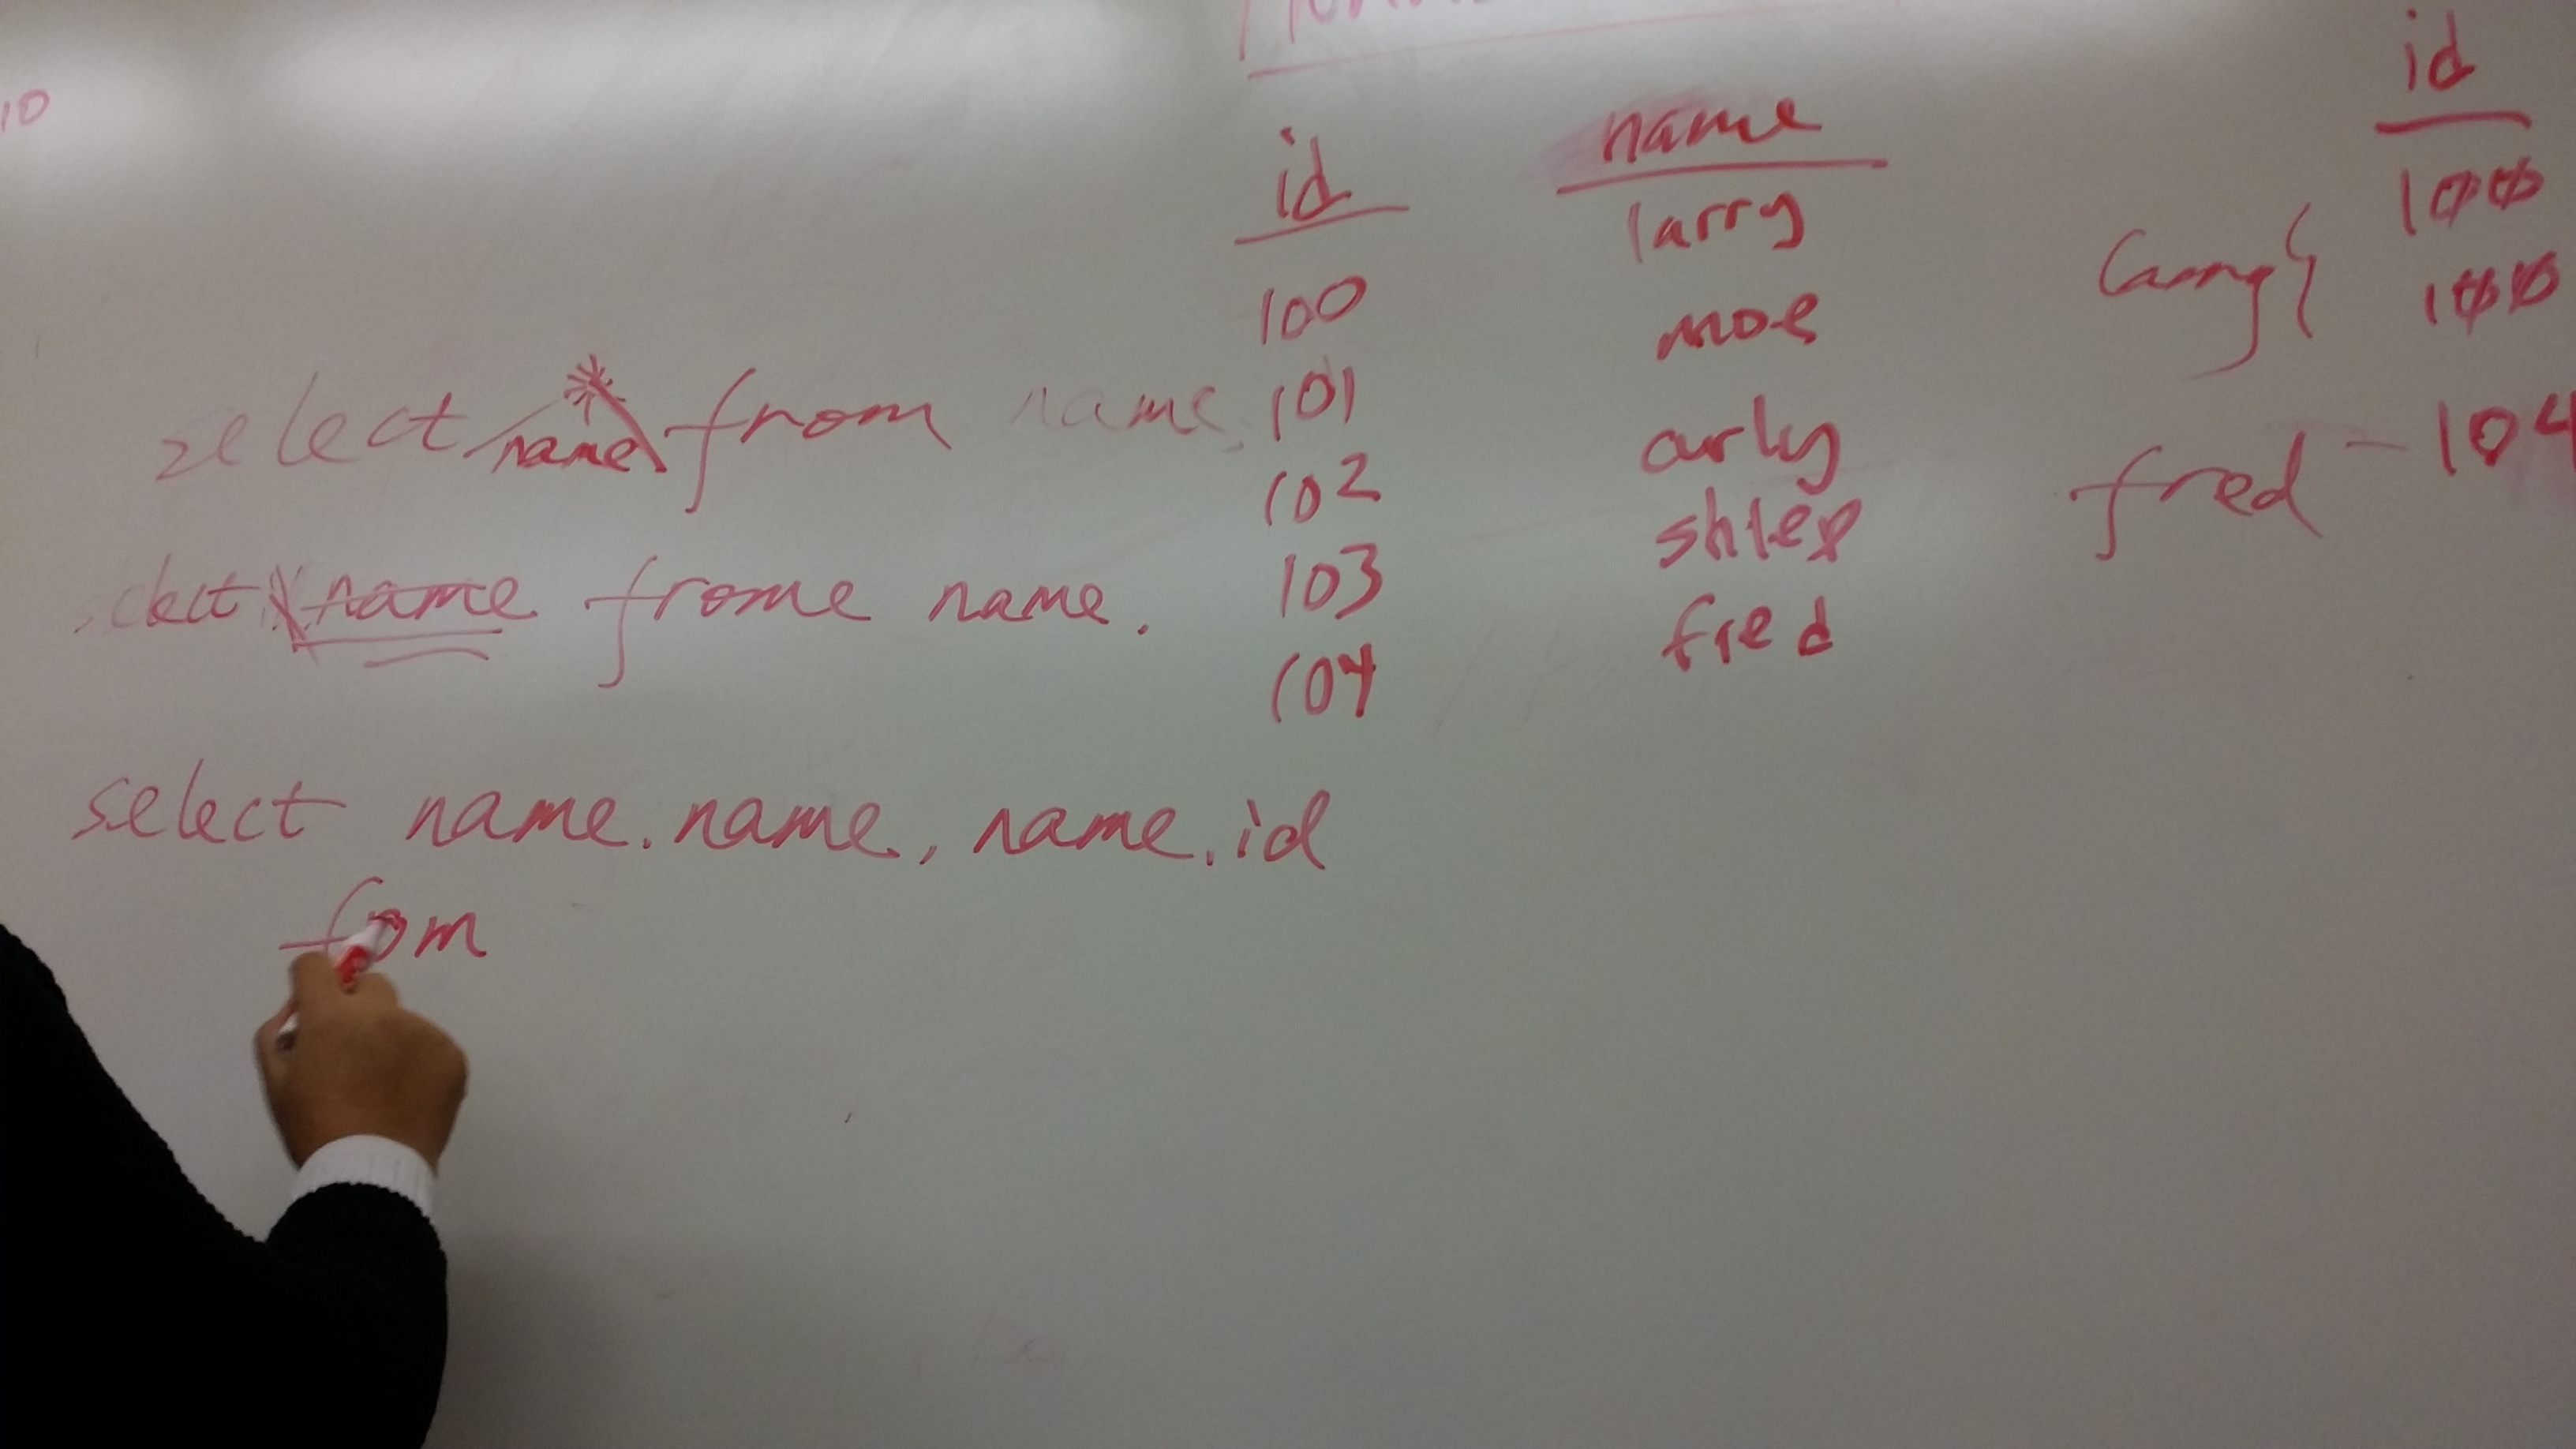 10
id name id
100 larry 100
101 moe larry{ 100
102 curly fred - 104
103 shlep
104 fred
select * name from name.
select name frome name.
select name.name, name.id
from